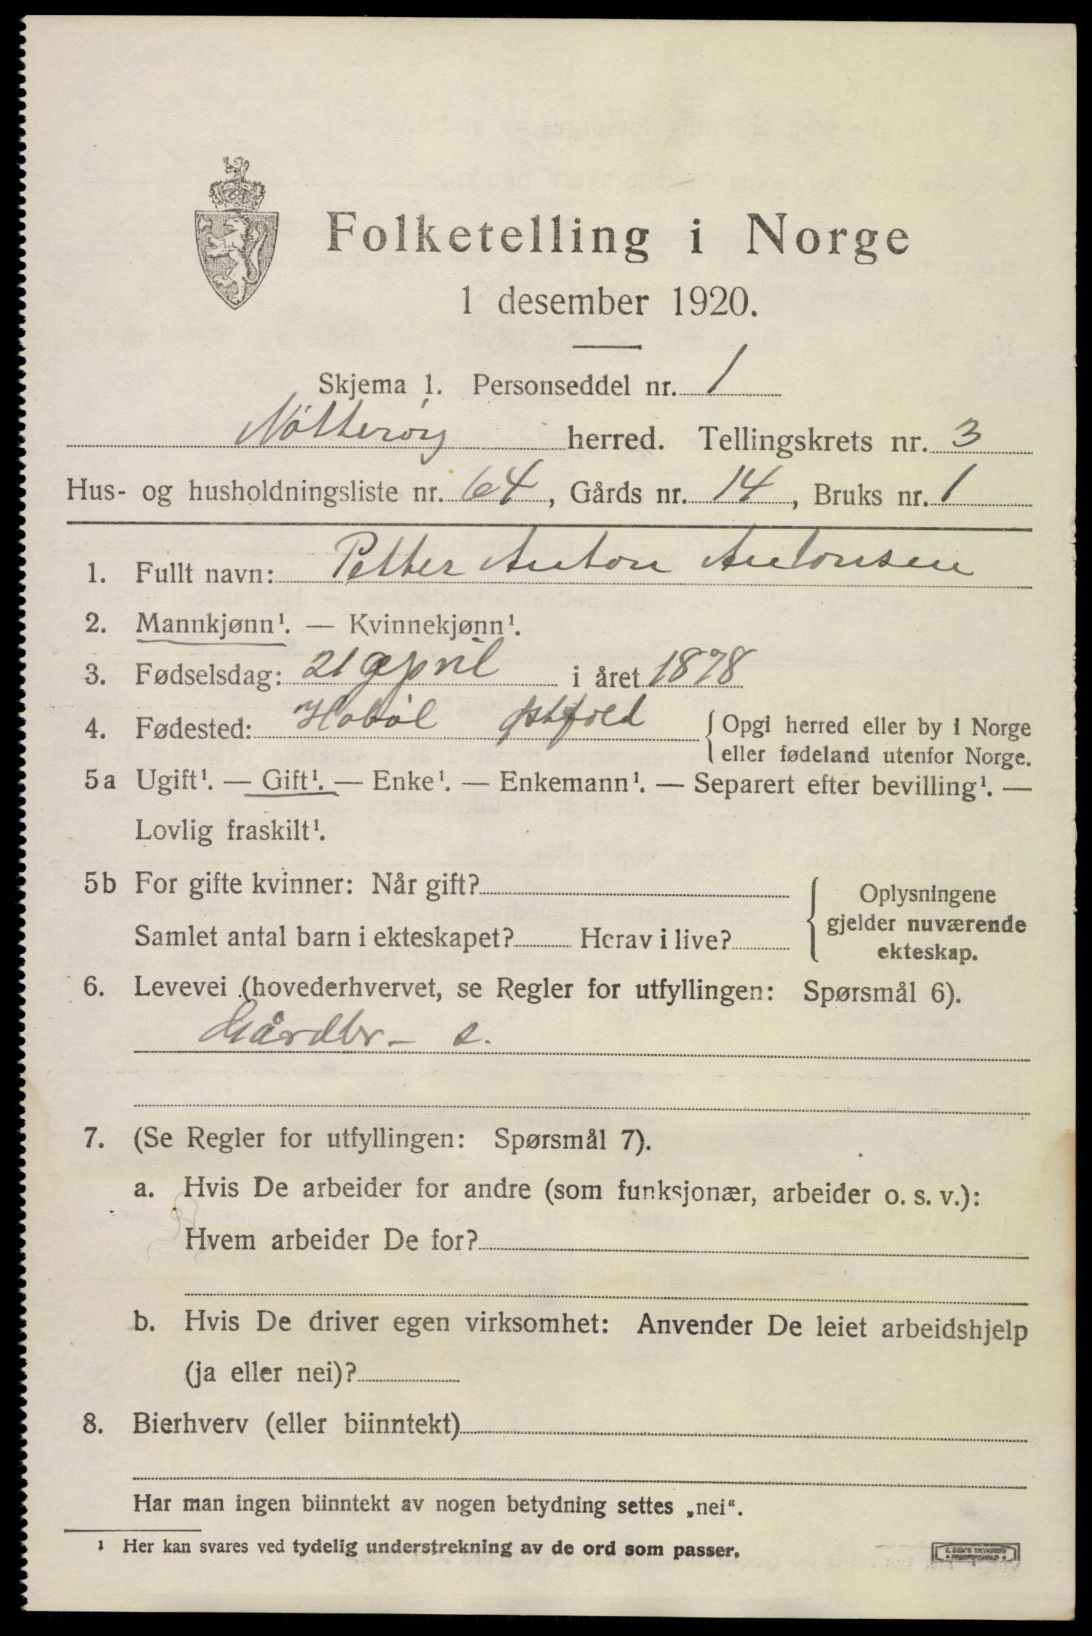 Folketelling i Norge
1 desember 1920.
Skjema 1. Personseddel nr. 1
Nötterøy herred. Tellingskrets nr. 3
Hus- og husholdningsliste nr. 64, Gårds nr. 14, Bruks nr. 1
1. Fullt navn: Petter Anton Antonsen
2. Mannkjønn¹. — Kvinnekjønn¹.
3. Fødselsdag: 21 april i året 1878
4. Fødested: Hobøl Østfold { Opgi herred eller by i Norge
eller fødeland utenfor Norge.
5a Ugift¹. — Gift¹. — Enke¹. — Enkemann¹. — Separert efter bevilling¹. —
Lovlig fraskilt¹.
5b For gifte kvinner: Når gift?
Samlet antal barn i ekteskapet? Herav i live?
{ Oplysningene
gjelder nuværende
ekteskap.
6. Levevei (hovederhvervet, se Regler for utfyllingen: Spørsmål 6).
Gårdbr – s.
7. (Se Regler for utfyllingen: Spørsmål 7).
a. Hvis De arbeider for andre (som funksjonær, arbeider o. s. v.):
Hvem arbeider De for?
b. Hvis De driver egen virksomhet: Anvender De leiet arbeidshjelp
(ja eller nei)?
8. Bierhverv (eller biinntekt)
Har man ingen biinntekt av nogen betydning settes „nei“.
¹ Her kan svares ved tydelig understrekning av de ord som passer.